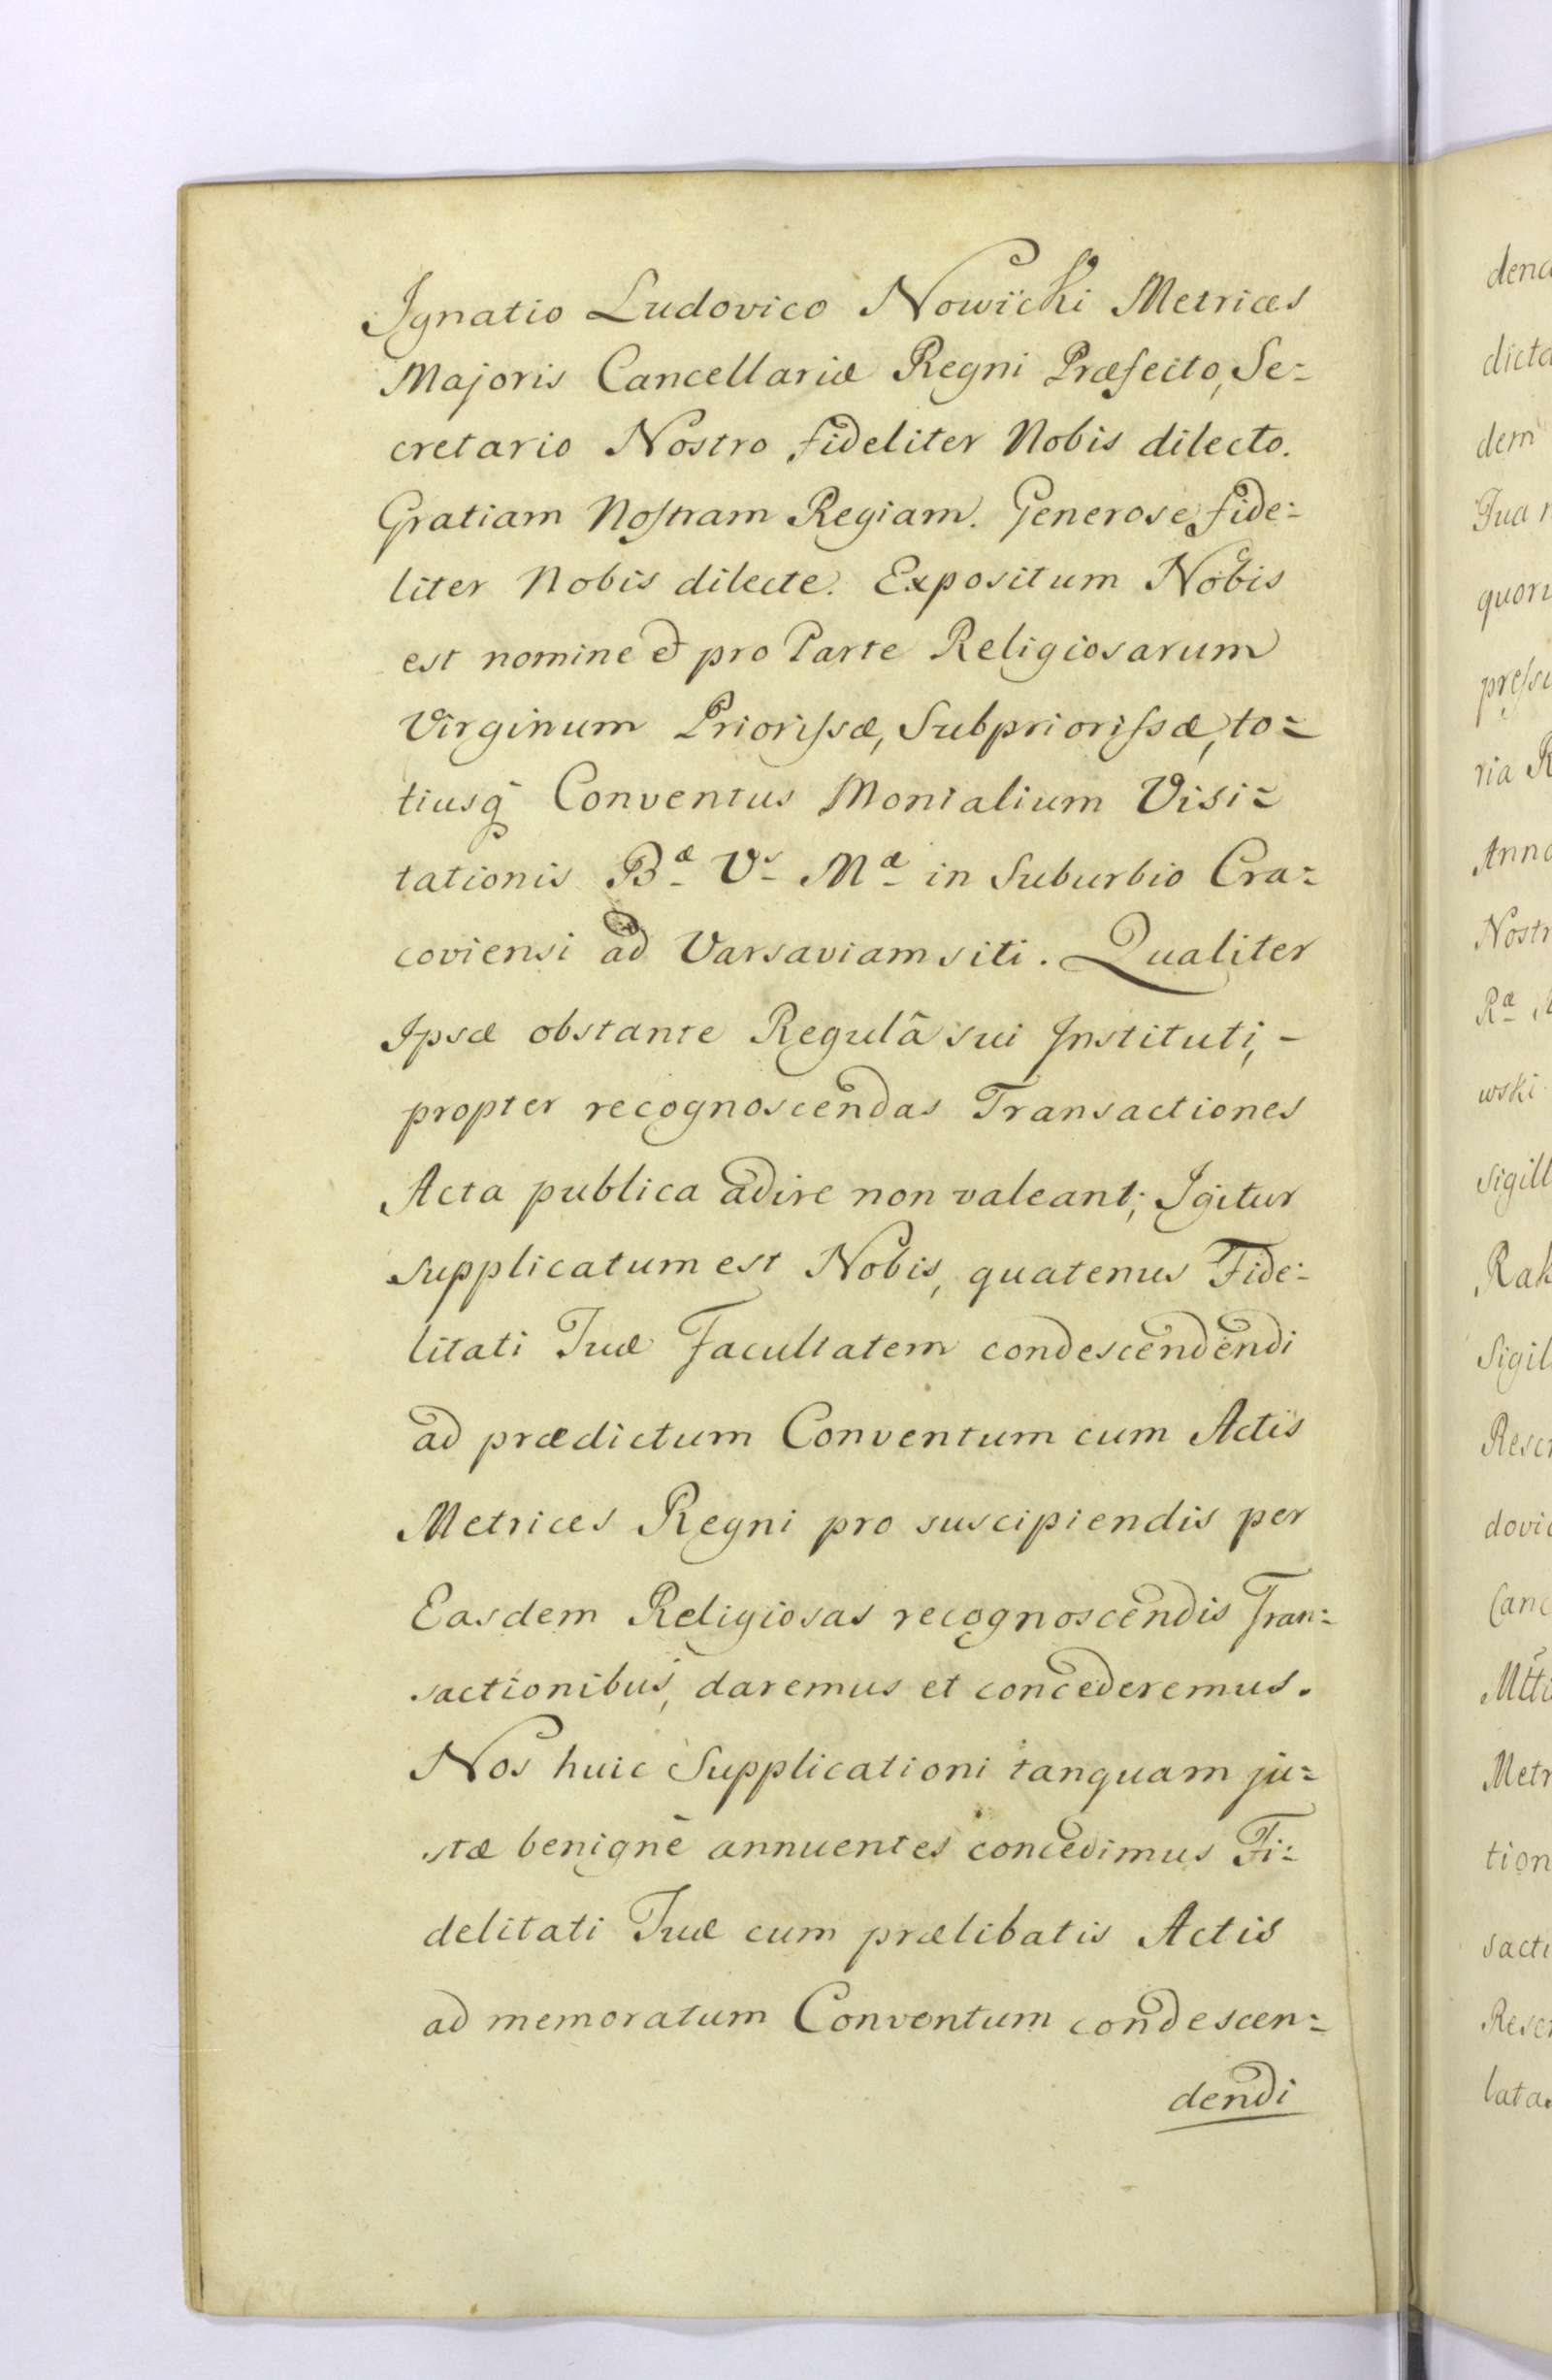 Ignatio Ludovico Nowicki Metrices
Majoris Cancellariæ Regni Præfecto, Se=
cretario Nostro fideliter Nobis dilecto.
Gratiam Nostram Regiam. Generose fide=
liter Nobis dilecte. Expositum Nobis
est nomine et pro Parte Religiosarum
Virginum Priorissæ, Subpriorissæ, to=
tiusq Conventus Monialium Visi=
tationis Bæ Vs Mæ in Suburbio Cra=
coviensi ad Varsaviam siti. Qualiter
Ipsæ obstante Regulâ sui Instituti, -
propter recognoscendas Transactiones
Acta publica adire non valeant; Igitur
supplicatum est Nobis, quatenus Fide=
litati Tuæ Facultatem condescendendi
ad prædictum Conventum cum Actis
Metrices Regni pro suscipiendis per
Easdem Religiosas recognoscendis Tran=
sactionibus, daremus et concederemus.
Nos huic Supplicationi tanquam ju=
stæ benignè annuentes concedimus Fi=
delitati Tuæ cum prælibatis Actis
ad memoratum Conventum condescen=
dendi
dend
dicta
dem
Tua
quor
pressi
ria R
Anno
Nostr
Ræ
wski
sigill
Rak
Sigil
Rescr
dovic
Canc
Metr
tion
sacti
Rescr
lata.